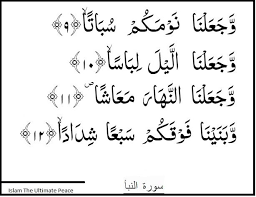 وَّجَعَلْنَا نَوْمَكُمْ سُبَاتًا ۙ﴿٩﴾
وَّجَعَلْنَا الَّيْلَ لِبَاسًا ۙ﴿١٠﴾
وَّجَعَلْنَا النَّهَارَ مَعَاشًا ۪﴿١١﴾
وَّبَنَيْنَا فَوْقَكُمْ سَبْعًا شِدَادًا ۙ﴿١٢﴾
سورة النبأ
Islam The Ultimate Peace